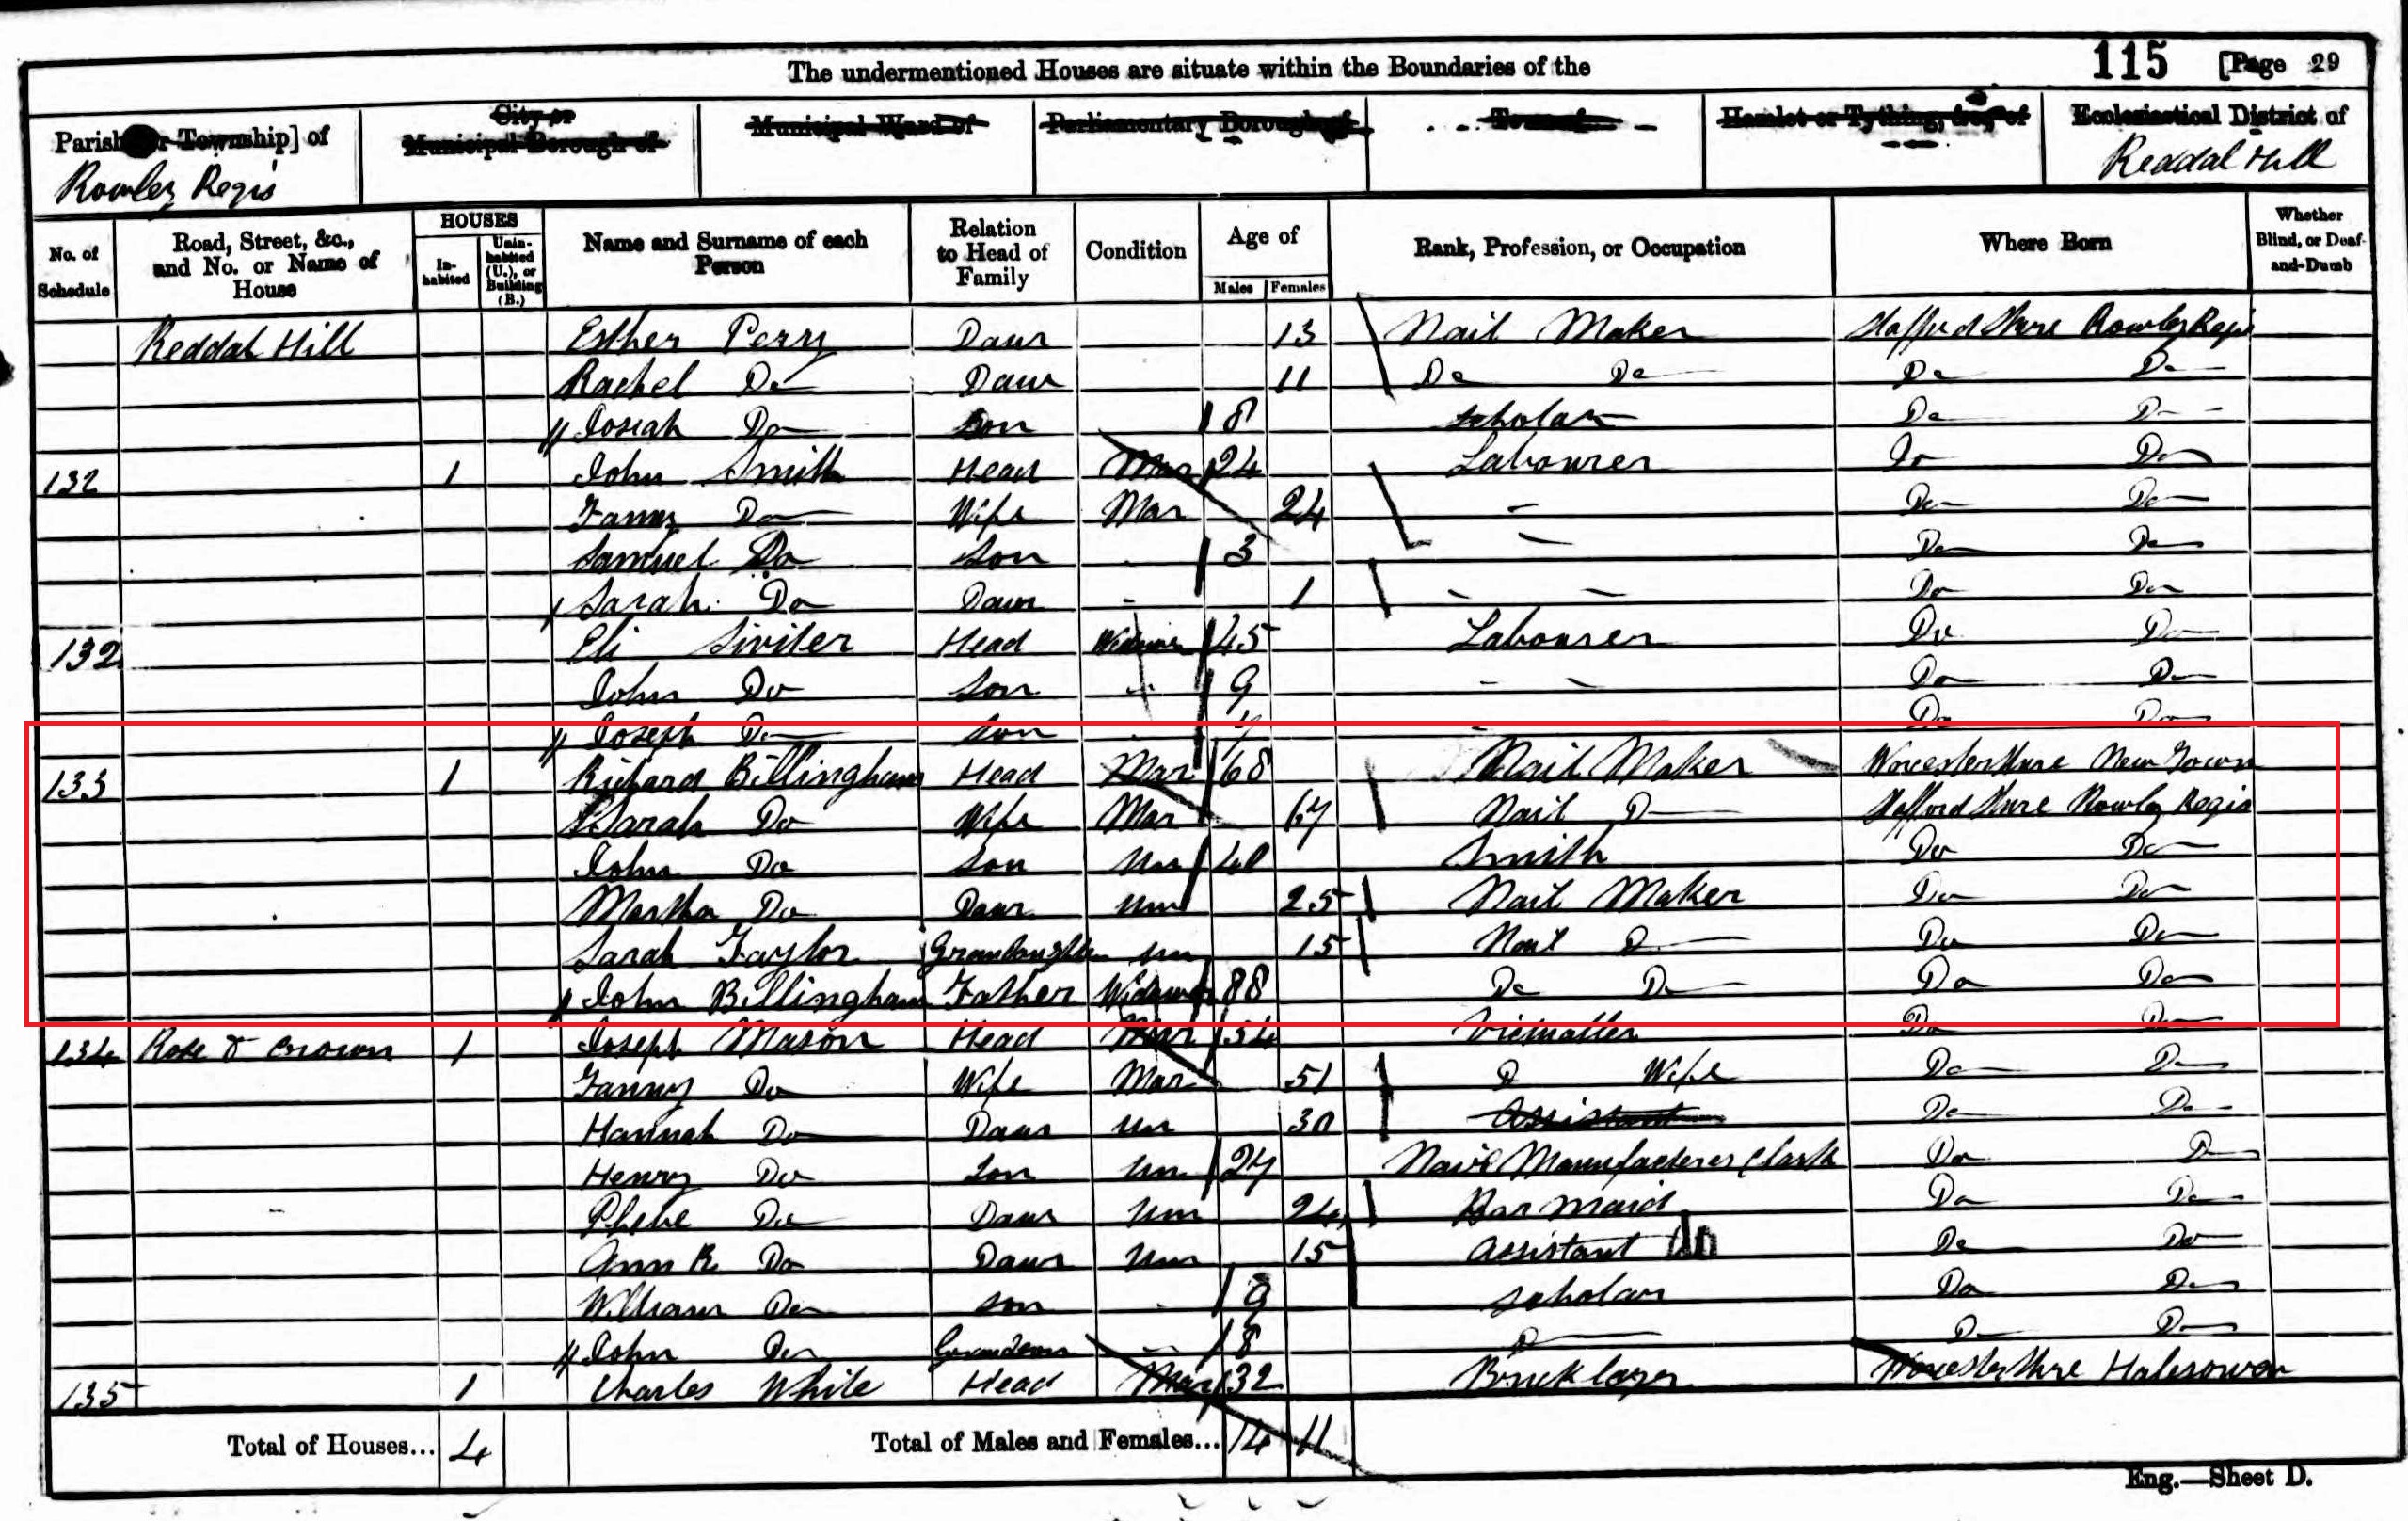 The undermentioned Houses are situate within the Boundaries of the
115 [Page 29
Parish [or Township] of
City or Municipal Borough of
Municipal Ward of
Parliamentary Borough of
Town of
Hamlet or Tything, &c., of
Ecclesiastical District of
Rowley Regis
Reddal Hill
No. of Schedule
Road, Street, &c., and No. or Name of House
HOUSES
In-habited
Unin-habited (U.), or Building (B.)
Name and Surname of each Person
Relation to Head of Family
Condition
Age of
Males Females
Rank, Profession, or Occupation
Where Born
Whether Blind, or Deaf-and-Dumb
Reddal Hill Esther Perry Daur 13 Nail Maker Staffordshire Rowley Regis
Rachel Do Daur 11 Do Do Do Do
Josiah Do Son 8 Scholar Do Do
132 1 John Smith Head Mar 24 Labourer Do Do
Fanny Do Wife Mar 24 Do Do
Samuel Do Son 3 Do Do
Sarah Do Daur 1 Do Do
132 Eli Siviter Head Widower 45 Labourer Do Do
John Do Son 9 Do Do
Joseph Do Son Do Do
133 1 Richard Billingham Head Mar 68 Nail Maker Worcestershire New Town
Sarah Do Wife Mar 67 Nail D Staffordshire Rowley Regis
John Do Son Un 40 Smith Do Do
Martha Do Daur Un 25 Nail Maker Do Do
Sarah Taylor Grandaughter Un 15 Nail D Do Do
John Billingham Father Widower 88 Do Do Do Do
134 Rose & Crown 1 Joseph Mason Head Mar 54 Victualler Do Do
Fanny Do Wife Mar 51 D Wife Do Do
Hannah Do Daur Un 30 Assistant Do Do
Henry Do Son Un 27 Nail Manufacterer Clark Do D
Phebe Do Daur Un 24 Bar Maid Do Do
Ann R. Do Daur Un 15 Assistant Do Do
William Do Son 9 Scholar Do Do
John Do Grandson 8 D D Do
135 1 Charles White Head Mar 32 Bricklayer Worcestershire Halesowen
Total of Houses... 4
Total of Males and Females... 14 11
Eng.—Sheet D.